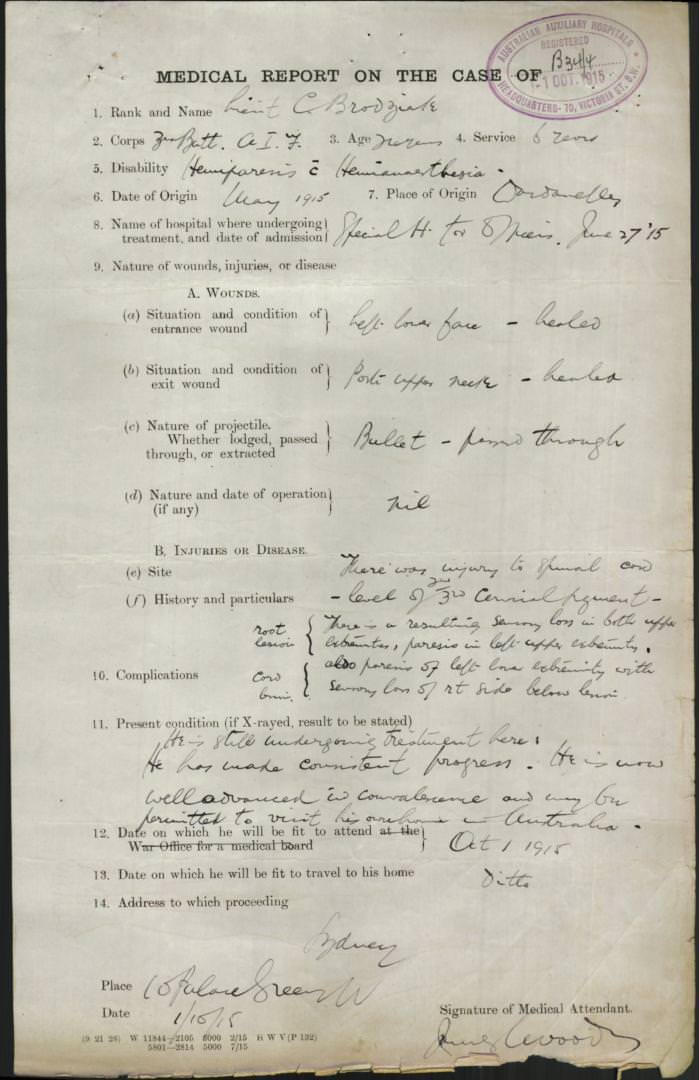 AUSTRALIAN AUXILIARY HOSPITALS
REGISTERED
B3414
1 OCT. 1915
HEADQUARTERS- 70, VICTORIA ST. S.W.
MEDICAL REPORT ON THE CASE OF
1. Rank and Name Lieut C. Brodziak
2. Corps 3rd Batt. A.I.F. 3. Age years 4. Service 6 years
5. Disability Hemiparesis c̄ Hemianaesthesia.
6. Date of Origin May 1915 7. Place of Origin Dardanelles
8. Name of hospital where undergoing treatment, and date of admission Special H. for Officers. June 27 '15
9. Nature of wounds, injuries, or disease
A. WOUNDS.
(a) Situation and condition of entrance wound Left lower face - healed
(b) Situation and condition of exit wound Post upper neck - healed
(c) Nature of projectile. Whether lodged, passed through, or extracted Bullet - passed through
(d) Nature and date of operation (if any) nil
B. INJURIES OR DISEASE.
(e) Site There was injury to spinal cord
(f) History and particulars - level of 2nd 3rd Cervical segment -
root lesion There is a resulting sensory loss in both upper
extremities, paresis in left upper extremity.
10. Complications cord lesion. also paresis of left lower extremity with
sensory loss of rt side below lesion.
11. Present condition (if X-rayed, result to be stated)
He is still undergoing treatment here.
He has made consistent progress. He is now
well advanced in convalescence and may be
permitted to visit his own home in Australia.
12. Date on which he will be fit to attend at the War Office for a medical board Oct 1 1915
13. Date on which he will be fit to travel to his home Ditto
14. Address to which proceeding
Sydney
Place 10 Palace Green W
Date 1/10/15
Signature of Medical Attendant.
(9 21 26) W 11844-2105 5000 2/15 H W V (P 132)
5801-2814 5000 7/15